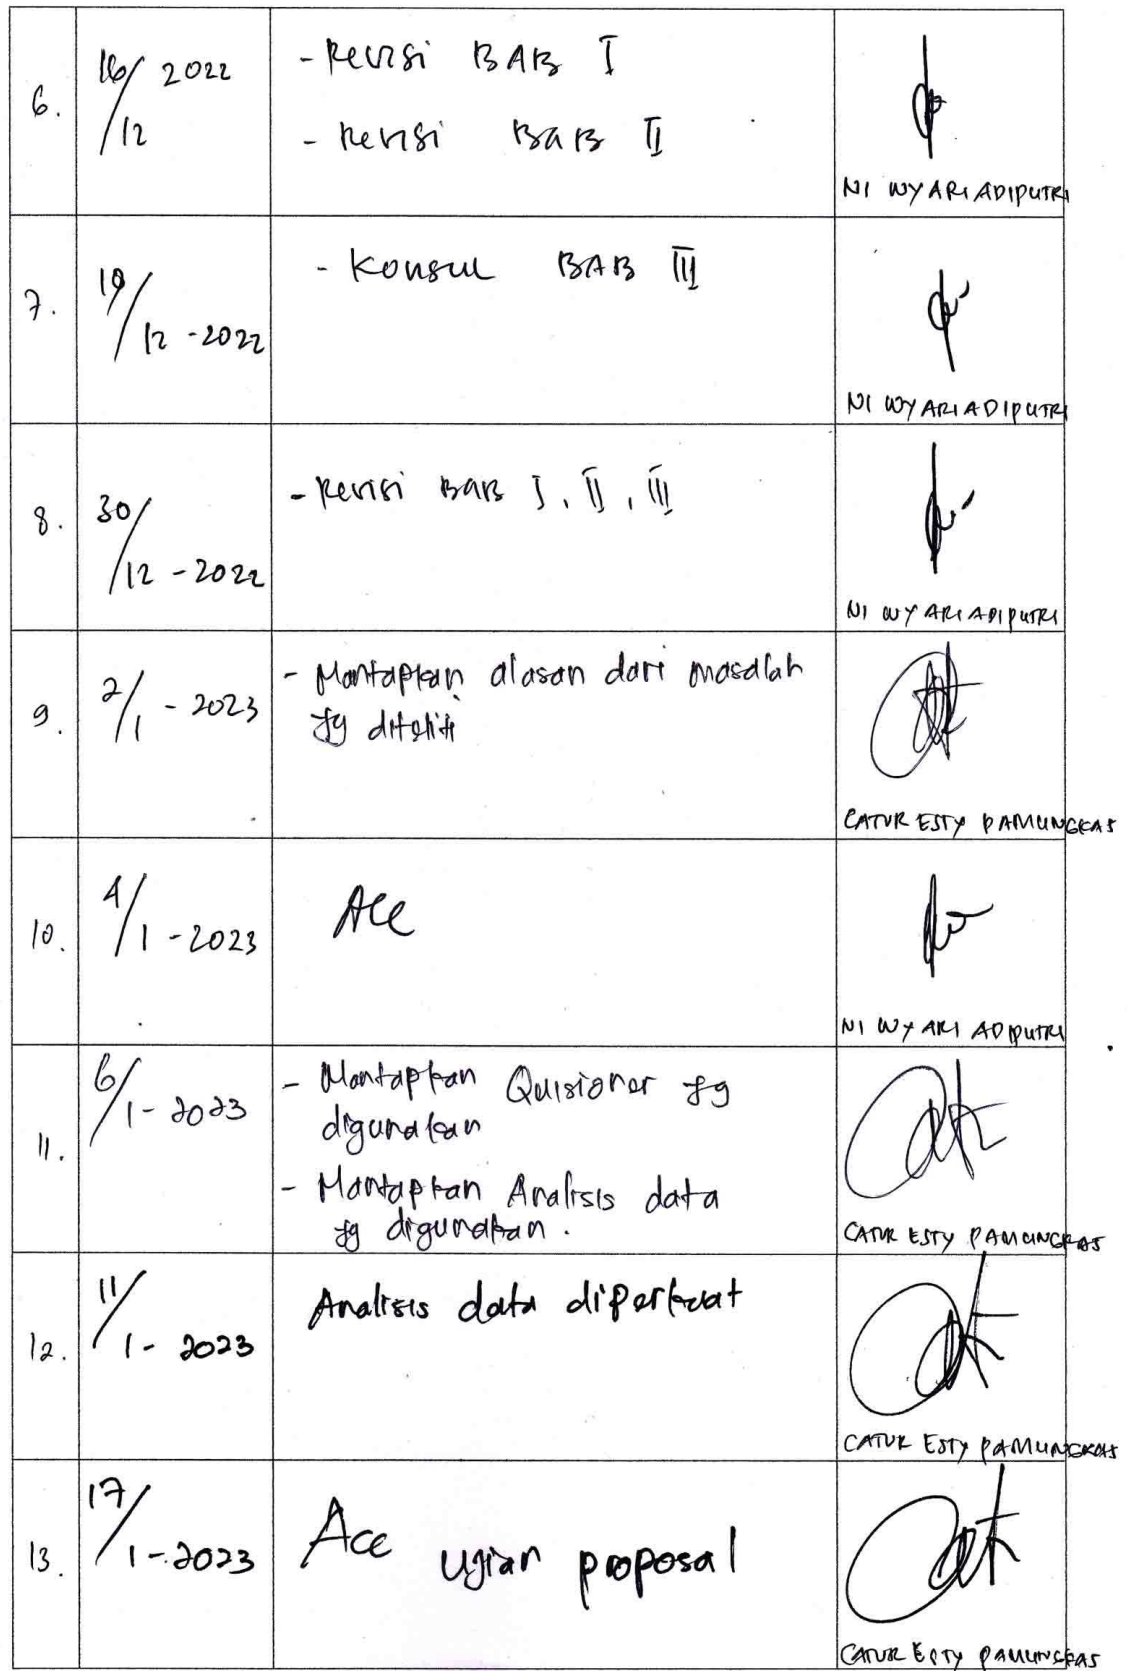 6.
16/12 2022
- Revisi BAB I
- Revisi BAB II
NI WY ARI ADIPUTRI
7.
19/12 - 2022
- Konsul BAB III
NI WY ARI ADIPUTRI
8.
30/12 - 2022
- Revisi BAB I, II, III
NI WY ARI ADIPUTRI
9.
2/1 - 2023
- Mantapkan alasan dari masalah
yg diteliti
CATUR ESTY PAMUNGKAS
10.
4/1 - 2023
Acc
NI WY ARI ADIPUTRI
11.
6/1 - 2023
- Mantapkan Quisioner yg
digunakan
- Mantapkan Analisis data
yg digunakan.
CATUR ESTY PAMUNGKAS
12.
11/1 - 2023
Analisis data diperkuat
CATUR ESTY PAMUNGKAS
13.
17/1 - 2023
Acc ujian proposal
CATUR ESTY PAMUNGKAS